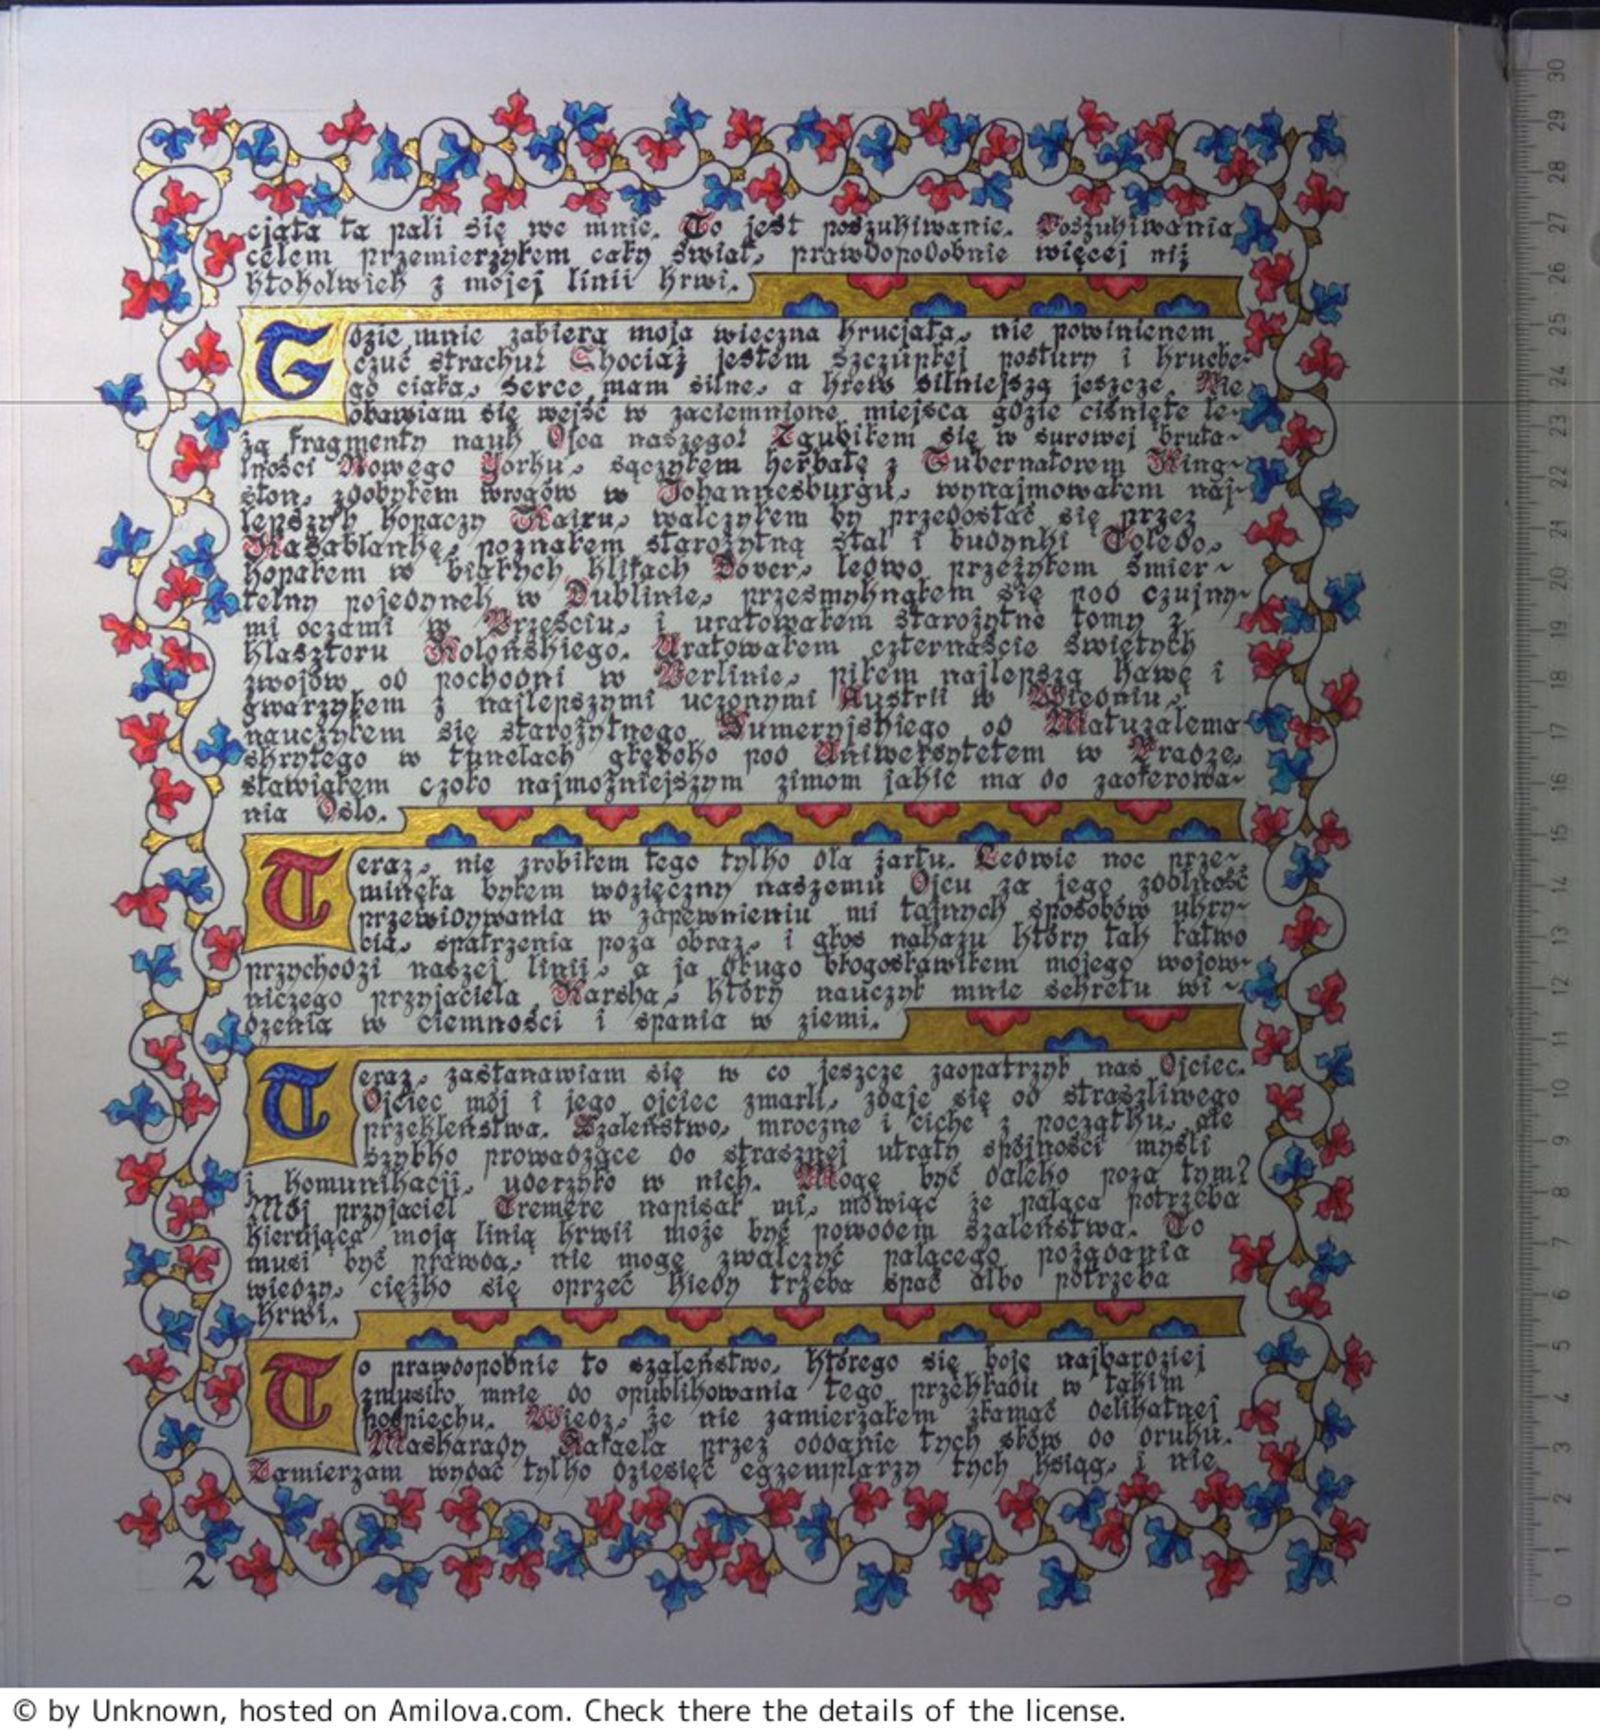 cjata ta pali się we mnie. To jest poszukiwanie. Poszukiwania
celem przemierzyłem cały świat, prawdopodobnie więcej niż
ktokolwiek z mojej linii krwi.
Gdzie mnie zabiera moja wieczna krucjata, nie powinienem
czuć strachu! Chociaż jestem szczupłej postury i kruche-
go ciała, serce mam silne, a krew silniejszą jeszcze. Nie
obawiam się wejść w zaciemnione miejsca gdzie ciśnięte le-
żą fragmenty nauk Ojca naszego! Zgubiłem się w surowej bruta-
lności Nowego Jorku, sączyłem herbatę z Gubernatorem King-
ston, zdobyłem wrogów w Johannesburgu, wynajmowałem naj-
lepszych kopaczy Kairu, walczyłem by przedostać się przez
Kasablankę, poznałem starożytną stal i budynki Toledo,
kopałem w białych klifach Dover, ledwo przeżyłem śmier-
telny pojedynek w Dublinie, przesmyknąłem się pod czujny-
mi oczami w Brześciu, i uratowałem starożytne tomy z
klasztoru Kolońskiego. Uratowałem czternaście świętych
zwojów od pochodni w Berlinie, piłem najlepszą kawę i
gwarzyłem z najlepszymi uczonymi Austrii w Wiedniu,
nauczyłem się starożytnego Sumeryjskiego od Matuzalema
skrytego w tunelach głęboko pod Uniwersytetem w Pradze,
stawiałem czoło najmoźniejszym zimom jakie ma do zaoferowa-
nia Oslo.
Teraz, nie zrobiłem tego tylko dla żartu. Ledwie noc prze-
minęła byłem wdzięczny naszemu Ojcu za jego zdolność
przewidywania w zapewnieniu mi tajnych sposobów ukry-
cia, spatrzenia poza obraz, i głos nakazu który tak łatwo
przychodzi naszej linii, a ja długo błogosławiłem mojego wojow-
niczego przyjaciela Karsha, który nauczył mnie sekretu wi-
dzenia w ciemności i spania w ziemi.
Teraz, zastanawiam się w co jeszcze zaopatrzył nas Ojciec.
Ojciec mój i jego ojciec zmarli, zdaje się od straszliwego
przekleństwa. Szaleństwo, mroczne i ciche z początku, ale
szybko prowadzące do strasznej utraty spójności myśli
i komunikacji, uderzyło w nich. Mogę być daleko poza tym?
Mój przyjaciel Tremere napisał mi, mówiąc że paląca potrzeba
kierująca moją linią krwii może być powodem szaleństwa. To
musi być prawda, nie mogę zwalczyć palącego pożądania
wiedzy, ciężko się oprzeć kiedy trzeba spać albo potrzeba
krwi.
To prawdopobnie to szaleństwo, którego się boję najbardziej
zmusiło mnie do opublikowania tego przekładu w takim
pośpiechu. Wiedz, że nie zamierzałem złamać delikatnej
Maskarady Rafaela przez oddanie tych słów do druku.
Zamierzam wydać tylko dziesięć egzemplarzy tych ksiąg, i nie
2
30
29
28
27
26
25
24
23
22
21
20
19
18
17
16
15
14
13
12
11
10
9
8
7
6
5
4
3
2
1
0
© by Unknown, hosted on Amilova.com. Check there the details of the license.